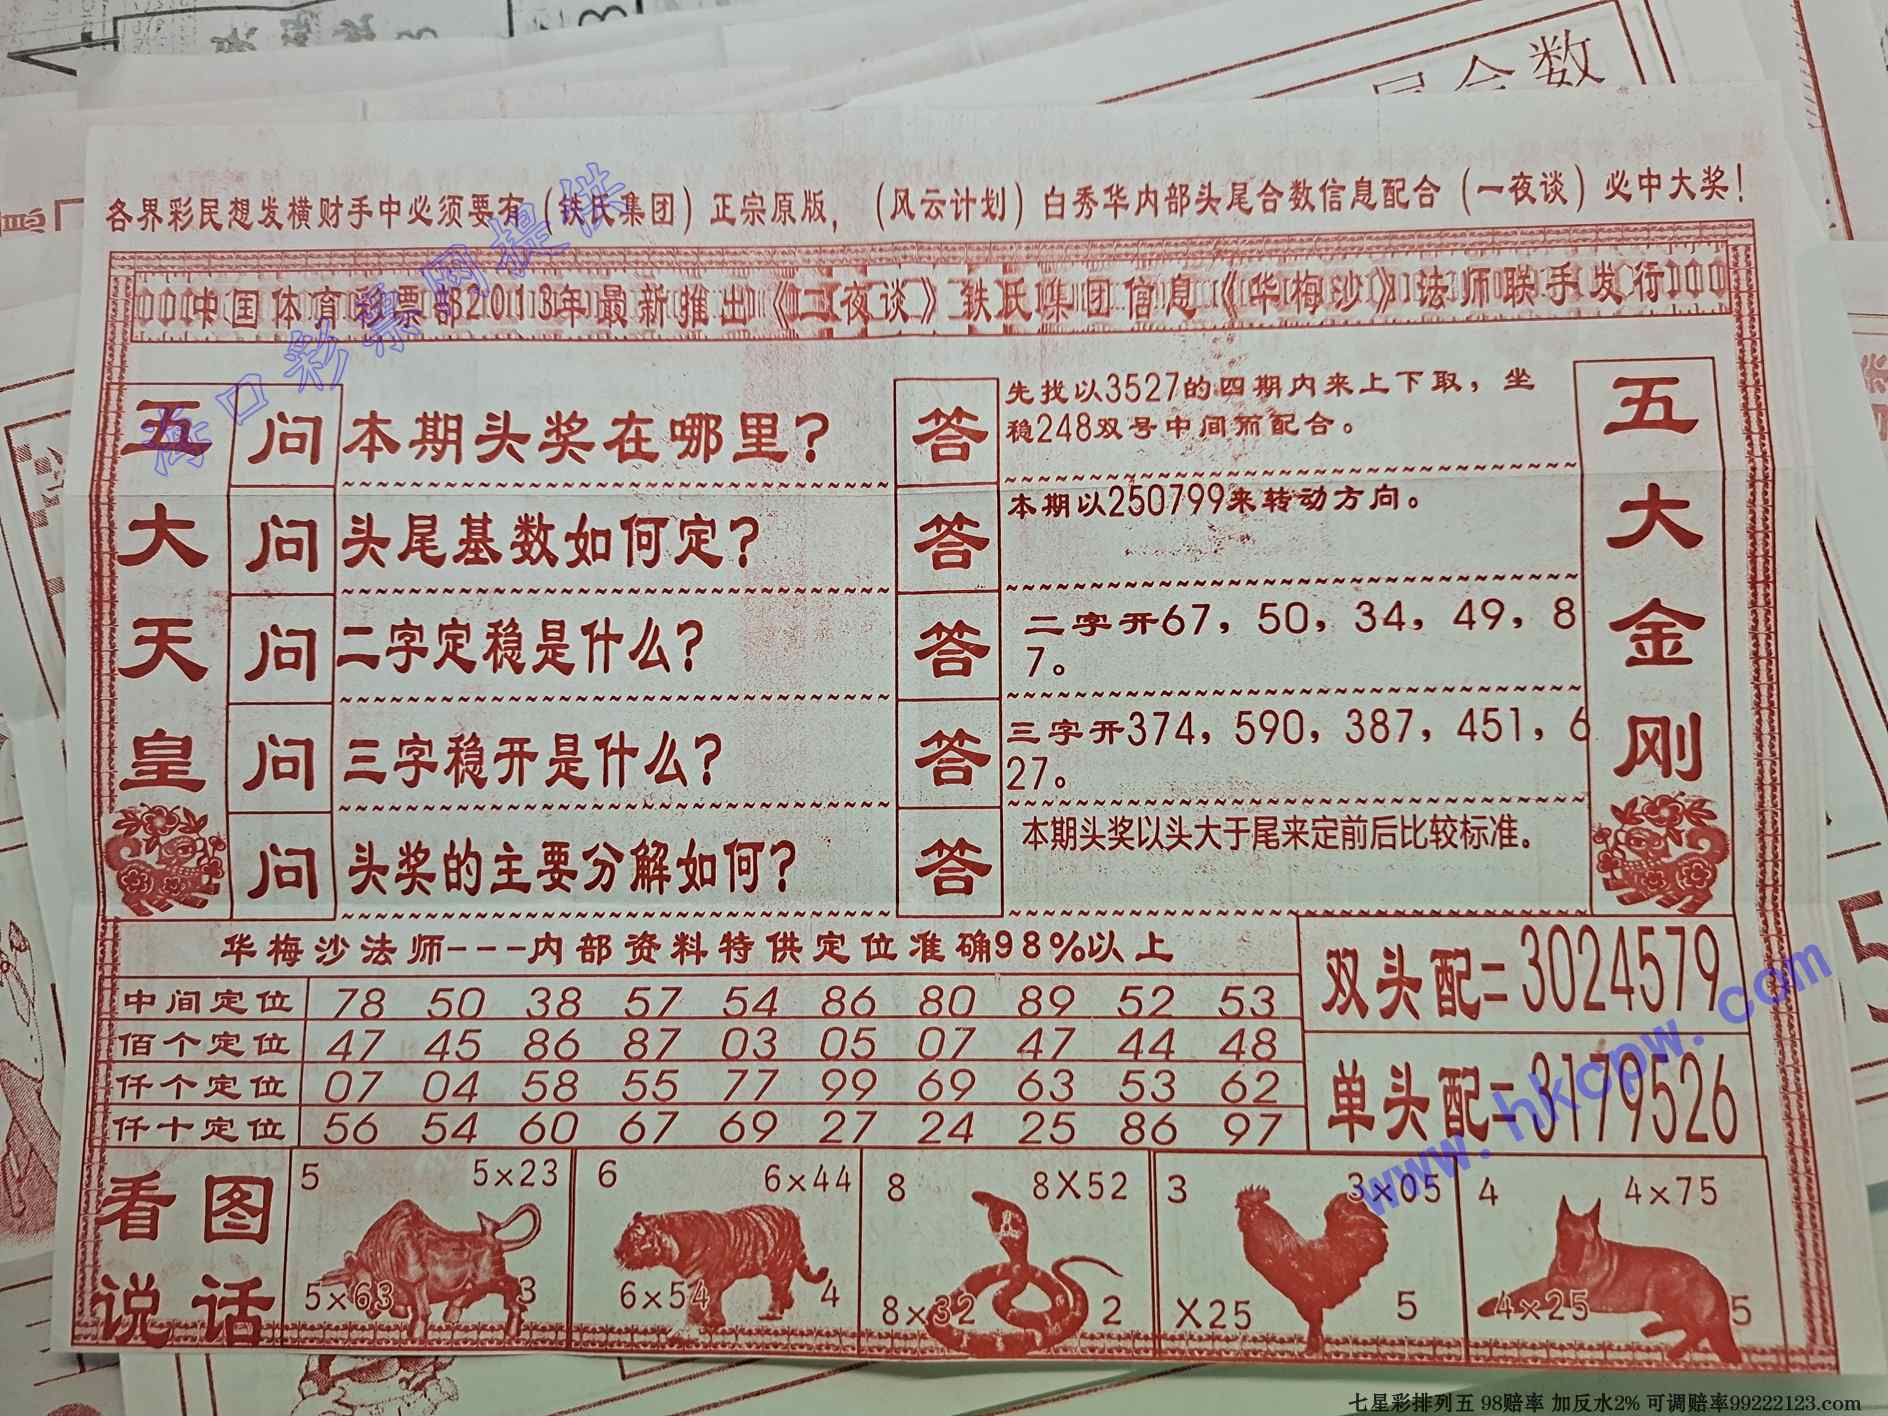 各界彩民想发横财手中必须要有（铁氏集团）正宗原版，（风云计划）白秀华内部头尾合数信息配合（一夜谈）必中大奖！
中国体育彩票部2013年最新推出《一夜谈》铁氏集团信息《华梅沙》法师联手发行
五大天皇
问 本期头奖在哪里？
答 先找以3527的四期内来上下取，坐
稳248双号中间而配合。
问 头尾基数如何定？
答 本期以250799来转动方向。
问 二字定稳是什么？
答 二字开67，50，34，49，8
7。
问 三字稳开是什么？
答 三字开374，590，387，451，6
27。
问 头奖的主要分解如何？
答 本期头奖以头大于尾来定前后比较标准。
五大金刚
华梅沙法师---内部资料特供定位准确98%以上
中间定位 78 50 38 57 54 86 80 89 52 53
佰个定位 47 45 86 87 03 05 07 47 44 48
仟个定位 07 04 58 55 77 99 69 63 53 62
仟十定位 56 54 60 67 69 27 24 25 86 97
双头配=3024579
单头配=3179526
看图
说话
5 5×23
5×63 3
6 6×44
6×54 4
8 8X52
8×32 2
3 3×05
X25 5
4 4×75
4×25 5
海口彩票网提供
www.hkcpw.com
七星彩排列五 98赔率 加反水2% 可调赔率99222123.com
尾合数